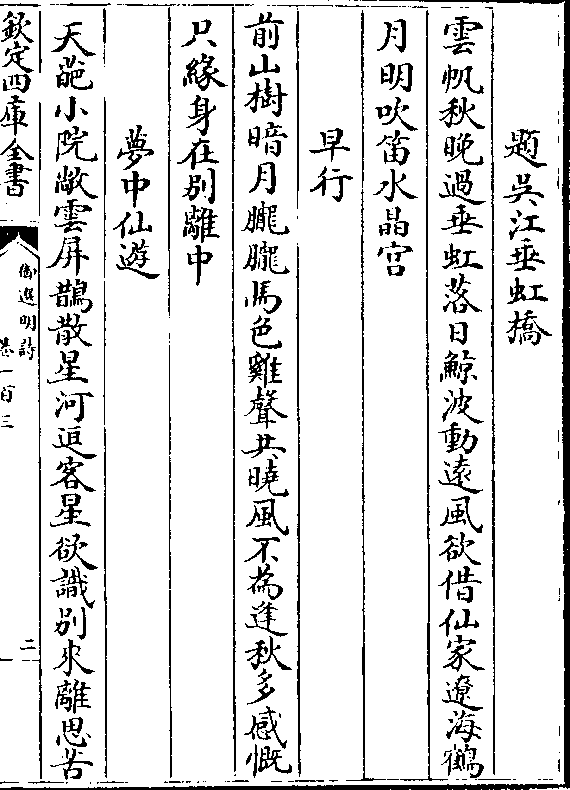 題吳江垂虹橋
雲帆秋晚過垂虹落日鯨波動遠風欲借仙家遼海鶴
月明吹笛水晶宫
早行
前山樹暗月朧朧馬色雞聲共曉風不為逢秋多感慨
只緣身在別離中
夢中仙遊
天葩小院敞雲屏鵲散星河逗客星欲識別來離思苦
欽定四庫全書
御選明詩
卷一百三
二